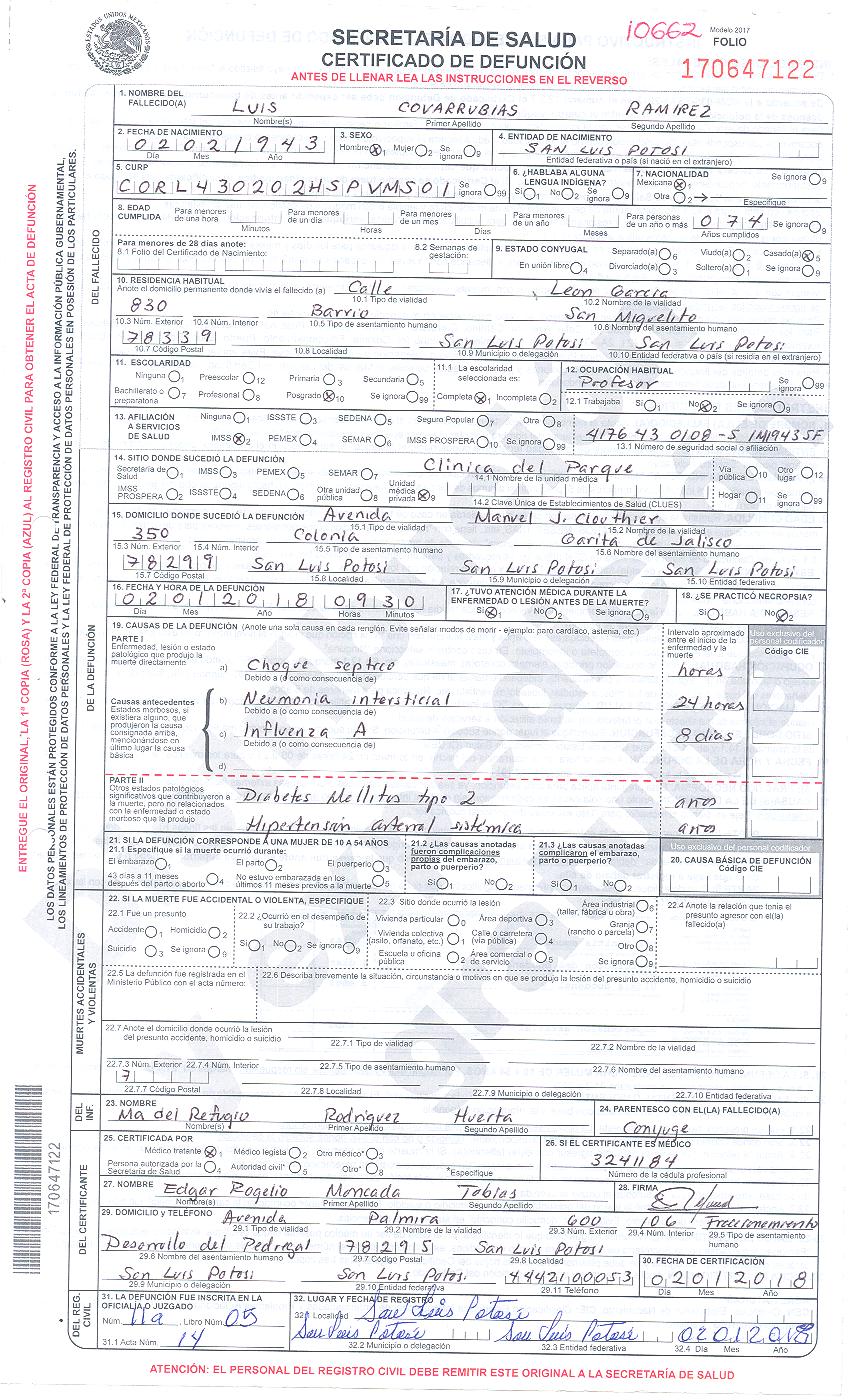 ESTADOS UNIDOS MEXICANOS
SECRETARÍA DE SALUD
CERTIFICADO DE DEFUNCIÓN
ANTES DE LLENAR LEA LAS INSTRUCCIONES EN EL REVERSO
10662
Modelo 2017
FOLIO
170647122
1. NOMBRE DEL FALLECIDO(A) LUIS COVARRUBIAS RAMIREZ
Nombre(s) Primer Apellido Segundo Apellido
2. FECHA DE NACIMIENTO 02021943
Día Mes Año
3. SEXO Hombre 1 Mujer 2 Se ignora 9
4. ENTIDAD DE NACIMIENTO SAN LUIS POTOSI
Entidad federativa o país (si nació en el extranjero)
5. CURP CORL430202HSPVMS01 Se ignora 99
6. ¿HABLABA ALGUNA LENGUA INDÍGENA? Sí 1 No 2 Se ignora 9
7. NACIONALIDAD Mexicana 1 Se ignora 9
Otra 2 Especifique
8. EDAD CUMPLIDA Para menores de una hora Para menores de un día Para menores de un mes Para menores de un año Para personas de un año o más 074 Se ignora 9
Minutos Horas Días Meses Años cumplidos
Para menores de 28 días anote:
8.1 Folio del Certificado de Nacimiento: 8.2 Semanas de gestación:
9. ESTADO CONYUGAL Separado(a) 6 Viudo(a) 2 Casado(a) 5
En unión libre 4 Divorciado(a) 3 Soltero(a) 1 Se ignora 9
10. RESIDENCIA HABITUAL
Anote el domicilio permanente donde vivía el fallecido (a) Calle Leon Garcia
10.1 Tipo de vialidad 10.2 Nombre de la vialidad
830 Barrio San Miguelito
10.3 Núm. Exterior 10.4 Núm. Interior 10.5 Tipo de asentamiento humano 10.6 Nombre del asentamiento humano
78339 San Luis Potosi San Luis Potosi
10.7 Código Postal 10.8 Localidad 10.9 Municipio o delegación 10.10 Entidad federativa o país (si residía en el extranjero)
11. ESCOLARIDAD
Ninguna 1 Preescolar 12 Primaria 3 Secundaria 5
Bachillerato o preparatoria 7 Profesional 8 Posgrado 10 Se ignora 99
11.1 La escolaridad seleccionada es:
Completa 1 Incompleta 2
12. OCUPACIÓN HABITUAL
Profesor Se ignora 99
12.1 Trabajaba Sí 1 No 2 Se ignora 9
13. AFILIACIÓN A SERVICIOS DE SALUD
Ninguna 1 ISSSTE 3 SEDENA 5 Seguro Popular 7 Otra 8
IMSS 2 PEMEX 4 SEMAR 6 IMSS PROSPERA 10 Se ignora 99
4176 43 0108-5 1M1943SF
13.1 Número de seguridad social o afiliación
14. SITIO DONDE SUCEDIÓ LA DEFUNCIÓN
Secretaría de Salud 1 IMSS 3 PEMEX 5 SEMAR 7
IMSS PROSPERA 2 ISSSTE 4 SEDENA 6 Otra unidad pública 8 Unidad médica privada 9
Clinica del Parque
14.1 Nombre de la unidad médica
14.2 Clave Única de Establecimientos de Salud (CLUES)
Vía pública 10 Otro lugar 12
Hogar 11 Se ignora 99
15. DOMICILIO DONDE SUCEDIÓ LA DEFUNCIÓN Avenida Manuel J. Clouthier
15.1 Tipo de vialidad 15.2 Nombre de la vialidad
350 Colonia Garita de Jalisco
15.3 Núm. Exterior 15.4 Núm. Interior 15.5 Tipo de asentamiento humano 15.6 Nombre del asentamiento humano
78299 San Luis Potosi San Luis Potosi San Luis Potosi
15.7 Código Postal 15.8 Localidad 15.9 Municipio o delegación 15.10 Entidad federativa
16. FECHA Y HORA DE LA DEFUNCIÓN
02012018 0930
Día Mes Año Horas Minutos
17. ¿TUVO ATENCIÓN MÉDICA DURANTE LA ENFERMEDAD O LESIÓN ANTES DE LA MUERTE?
Sí 1 No 2 Se ignora 9
18. ¿SE PRACTICÓ NECROPSIA?
Sí 1 No 2
19. CAUSAS DE LA DEFUNCIÓN (Anote una sola causa en cada renglón. Evite señalar modos de morir - ejemplo: paro cardíaco, astenia, etc.)
Intervalo aproximado entre el inicio de la enfermedad y la muerte
Uso exclusivo del personal codificador
Código CIE
PARTE I
Enfermedad, lesión o estado patológico que produjo la muerte directamente
a) Choque septico horas
Debido a (o como consecuencia de)
Causas antecedentes
Estados morbosos, si existiera alguno, que produjeron la causa consignada arriba, mencionándose en último lugar la causa básica
b) Neumonia intersticial 24 horas
Debido a (o como consecuencia de)
c) Influenza A 8 dias
Debido a (o como consecuencia de)
d)
PARTE II
Otros estados patológicos significativos que contribuyeron a la muerte, pero no relacionados con la enfermedad o estado morboso que la produjo
Diabetes Mellitus tipo 2 años
Hipertensán arterial sistémica años
21. SI LA DEFUNCIÓN CORRESPONDE A UNA MUJER DE 10 A 54 AÑOS
21.1 Especifique si la muerte ocurrió durante:
El embarazo 1 El parto 2 El puerperio 3
43 días a 11 meses después del parto o aborto 4 No estuvo embarazada en los últimos 11 meses previos a la muerte 5
21.2 ¿Las causas anotadas fueron complicaciones propias del embarazo, parto o puerperio?
Sí 1 No 2
21.3 ¿Las causas anotadas complicaron el embarazo, parto o puerperio?
Sí 1 No 2
Uso exclusivo del personal codificador
20. CAUSA BÁSICA DE DEFUNCIÓN
Código CIE
22. SI LA MUERTE FUE ACCIDENTAL O VIOLENTA, ESPECIFIQUE
22.1 Fue un presunto
Accidente 1 Homicidio 2
Suicidio 3 Se ignora 9
22.2 ¿Ocurrió en el desempeño de su trabajo?
Sí 1 No 2 Se ignora 9
22.3 Sitio donde ocurrió la lesión
Vivienda particular 0 Área deportiva 3 Área industrial (taller, fábrica u obra) 6
Vivienda colectiva (asilo, orfanato, etc.) 1 Calle o carretera (vía pública) 4 Granja (rancho o parcela) 7
Escuela u oficina pública 2 Área comercial o de servicio 5 Otro 8
Se ignora 9
22.4 Anote la relación que tenía el presunto agresor con el(la) fallecido(a)
22.5 La defunción fue registrada en el Ministerio Público con el acta número:
22.6 Describa brevemente la situación, circunstancia o motivos en que se produjo la lesión del presunto accidente, homicidio o suicidio
22.7 Anote el domicilio donde ocurrió la lesión del presunto accidente, homicidio o suicidio
22.7.1 Tipo de vialidad 22.7.2 Nombre de la vialidad
22.7.3 Núm. Exterior 22.7.4 Núm. Interior 22.7.5 Tipo de asentamiento humano 22.7.6 Nombre del asentamiento humano
7
22.7.7 Código Postal 22.7.8 Localidad 22.7.9 Municipio o delegación 22.7.10 Entidad federativa
23. NOMBRE
Ma del Refugio Rodriguez Huerta
Nombre(s) Primer Apellido Segundo Apellido
24. PARENTESCO CON EL(LA) FALLECIDO(A)
Conyuge
25. CERTIFICADA POR
Médico tratante 1 Médico legista 2 Otro médico* 3
Persona autorizada por la Secretaría de Salud 4 Autoridad civil* 5 Otro* 8 *Especifique
26. SI EL CERTIFICANTE ES MÉDICO
3241184
Número de la cédula profesional
27. NOMBRE Edgar Rogelio Moncada Tobias
Nombre(s) Primer Apellido Segundo Apellido
28. FIRMA
29. DOMICILIO y TELÉFONO Avenida Palmira 600 106 Fraccionamiento
29.1 Tipo de vialidad 29.2 Nombre de la vialidad 29.3 Núm. Exterior 29.4 Núm. Interior 29.5 Tipo de asentamiento humano
Desarrollo del Pedregal 78295 San Luis Potosi
29.6 Nombre del asentamiento humano 29.7 Código Postal 29.8 Localidad
San Luis Potosi San Luis Potosi 4442100053
29.9 Municipio o delegación 29.10 Entidad federativa 29.11 Teléfono
30. FECHA DE CERTIFICACIÓN
02012018
Día Mes Año
31. LA DEFUNCIÓN FUE INSCRITA EN LA OFICIALÍA O JUZGADO
Núm. 11a, Libro Núm. 05
31.1 Acta Núm. 14
32. LUGAR Y FECHA DE REGISTRO
32.1 Localidad San Luis Potosí
San Luis Potosí San Luis Potosí 02012018
32.2 Municipio o delegación 32.3 Entidad federativa 32.4 Día Mes Año
ATENCIÓN: EL PERSONAL DEL REGISTRO CIVIL DEBE REMITIR ESTE ORIGINAL A LA SECRETARÍA DE SALUD
ENTREGUE EL ORIGINAL, LA 1ª COPIA (ROSA) Y LA 2ª COPIA (AZUL) AL REGISTRO CIVIL PARA OBTENER EL ACTA DE DEFUNCIÓN
LOS DATOS PERSONALES ESTÁN PROTEGIDOS CONFORME A LA LEY FEDERAL DE TRANSPARENCIA Y ACCESO A LA INFORMACIÓN PÚBLICA GUBERNAMENTAL,
LOS LINEAMIENTOS DE PROTECCIÓN DE DATOS PERSONALES Y LA LEY FEDERAL DE PROTECCIÓN DE DATOS PERSONALES EN POSESIÓN DE LOS PARTICULARES.
DEL FALLECIDO
DE LA DEFUNCIÓN
MUERTES ACCIDENTALES Y VIOLENTAS
DEL INF.
DEL CERTIFICANTE
DEL REG. CIVIL
170647122